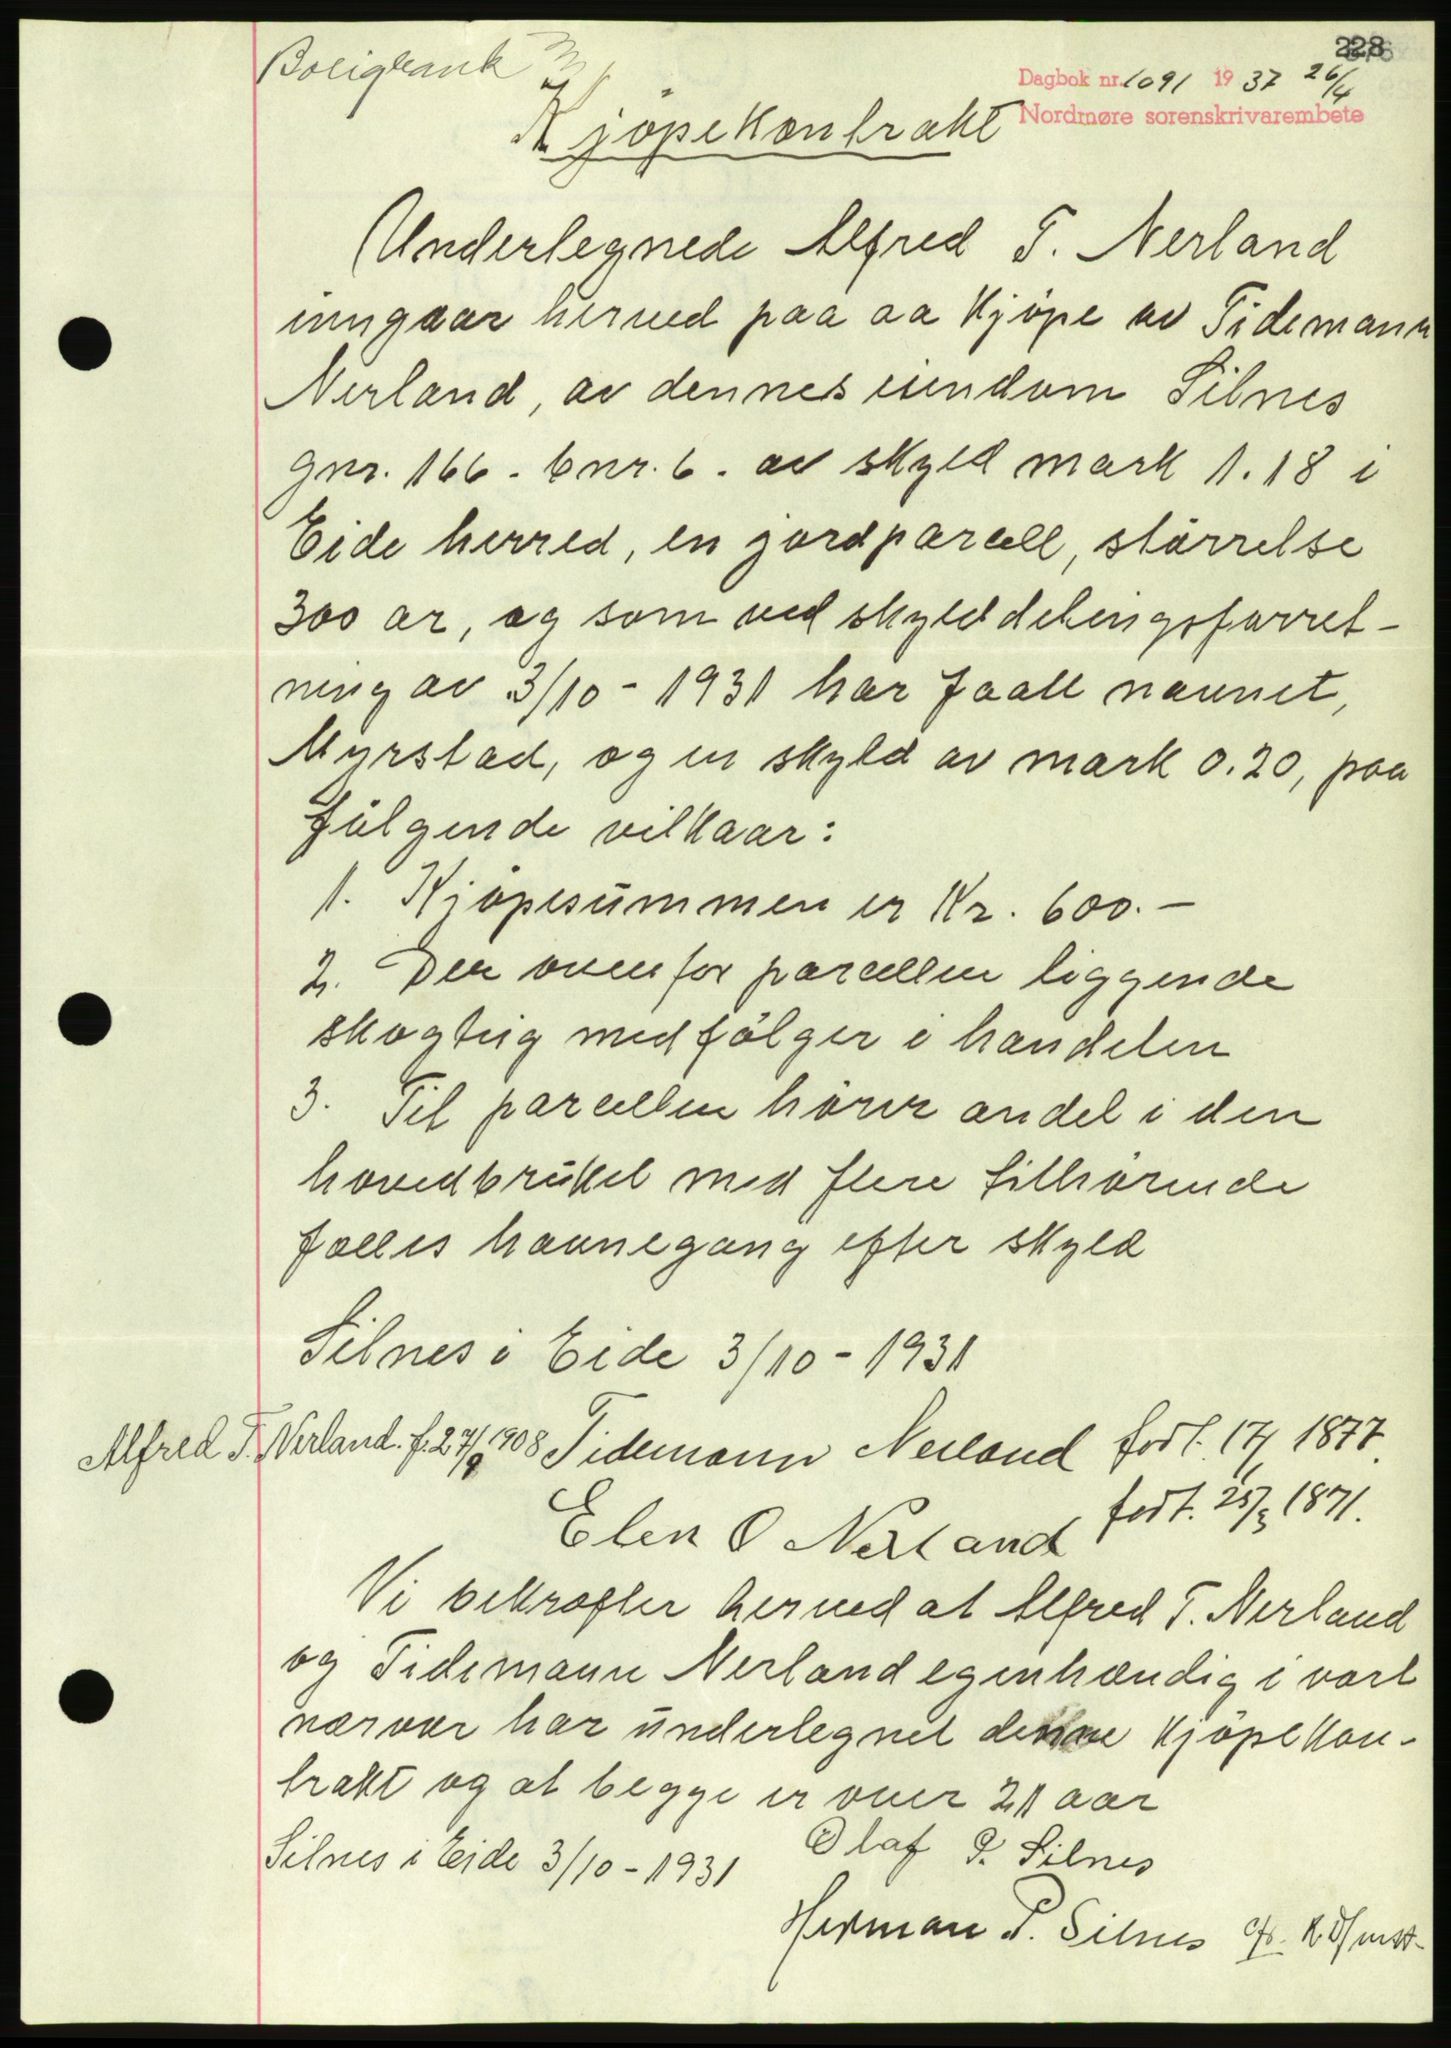 228
Boligbank
Dagbok nr. 1091 1937 26/4
Nordmøre sorenskrivarembete
Kjöpekontrakt
Undertegnede Alfred T. Nerland
inngaar herved paa aa kjöpe av Tidemann
Nerland, av dennes eiendom Silnes
gnr. 166 - bnr. 6 - av skyld mark 1.18 i
Eide herred, en jordparcell, störrelse
300 ar, og som ved skylddelingsforret-
ning av 3/10 - 1931 har faatt navnet,
Myrstad, og en skyld av mark 0.20, paa
fölgende vilkaar:
1. Kjöpesummen er Kr. 600.-
2. Den ovenfor parcellen liggende
skogteig medfölger i handelen
3. Til parcellen hörer andel i den
hovedbruket med flere tilhörende
felles havnegang efter skyld
Silnes i Eide 3/10 - 1931
Alfred T. Nerland. f. 27/9 1908 Tidemann Nerland født. 17/1 1877.
Elen O Nerland født. 25/3 1871.
Vi bekrefter herved at Alfred T. Nerland
og Tidemann Nerland egenhendig i vort
nærvær har undertegnet denne kjöpekon-
trakt og at begge er over 21 aar
Silnes i Eide 3/10 - 1931 Olaf P. Silnes
Herman P. Silnes